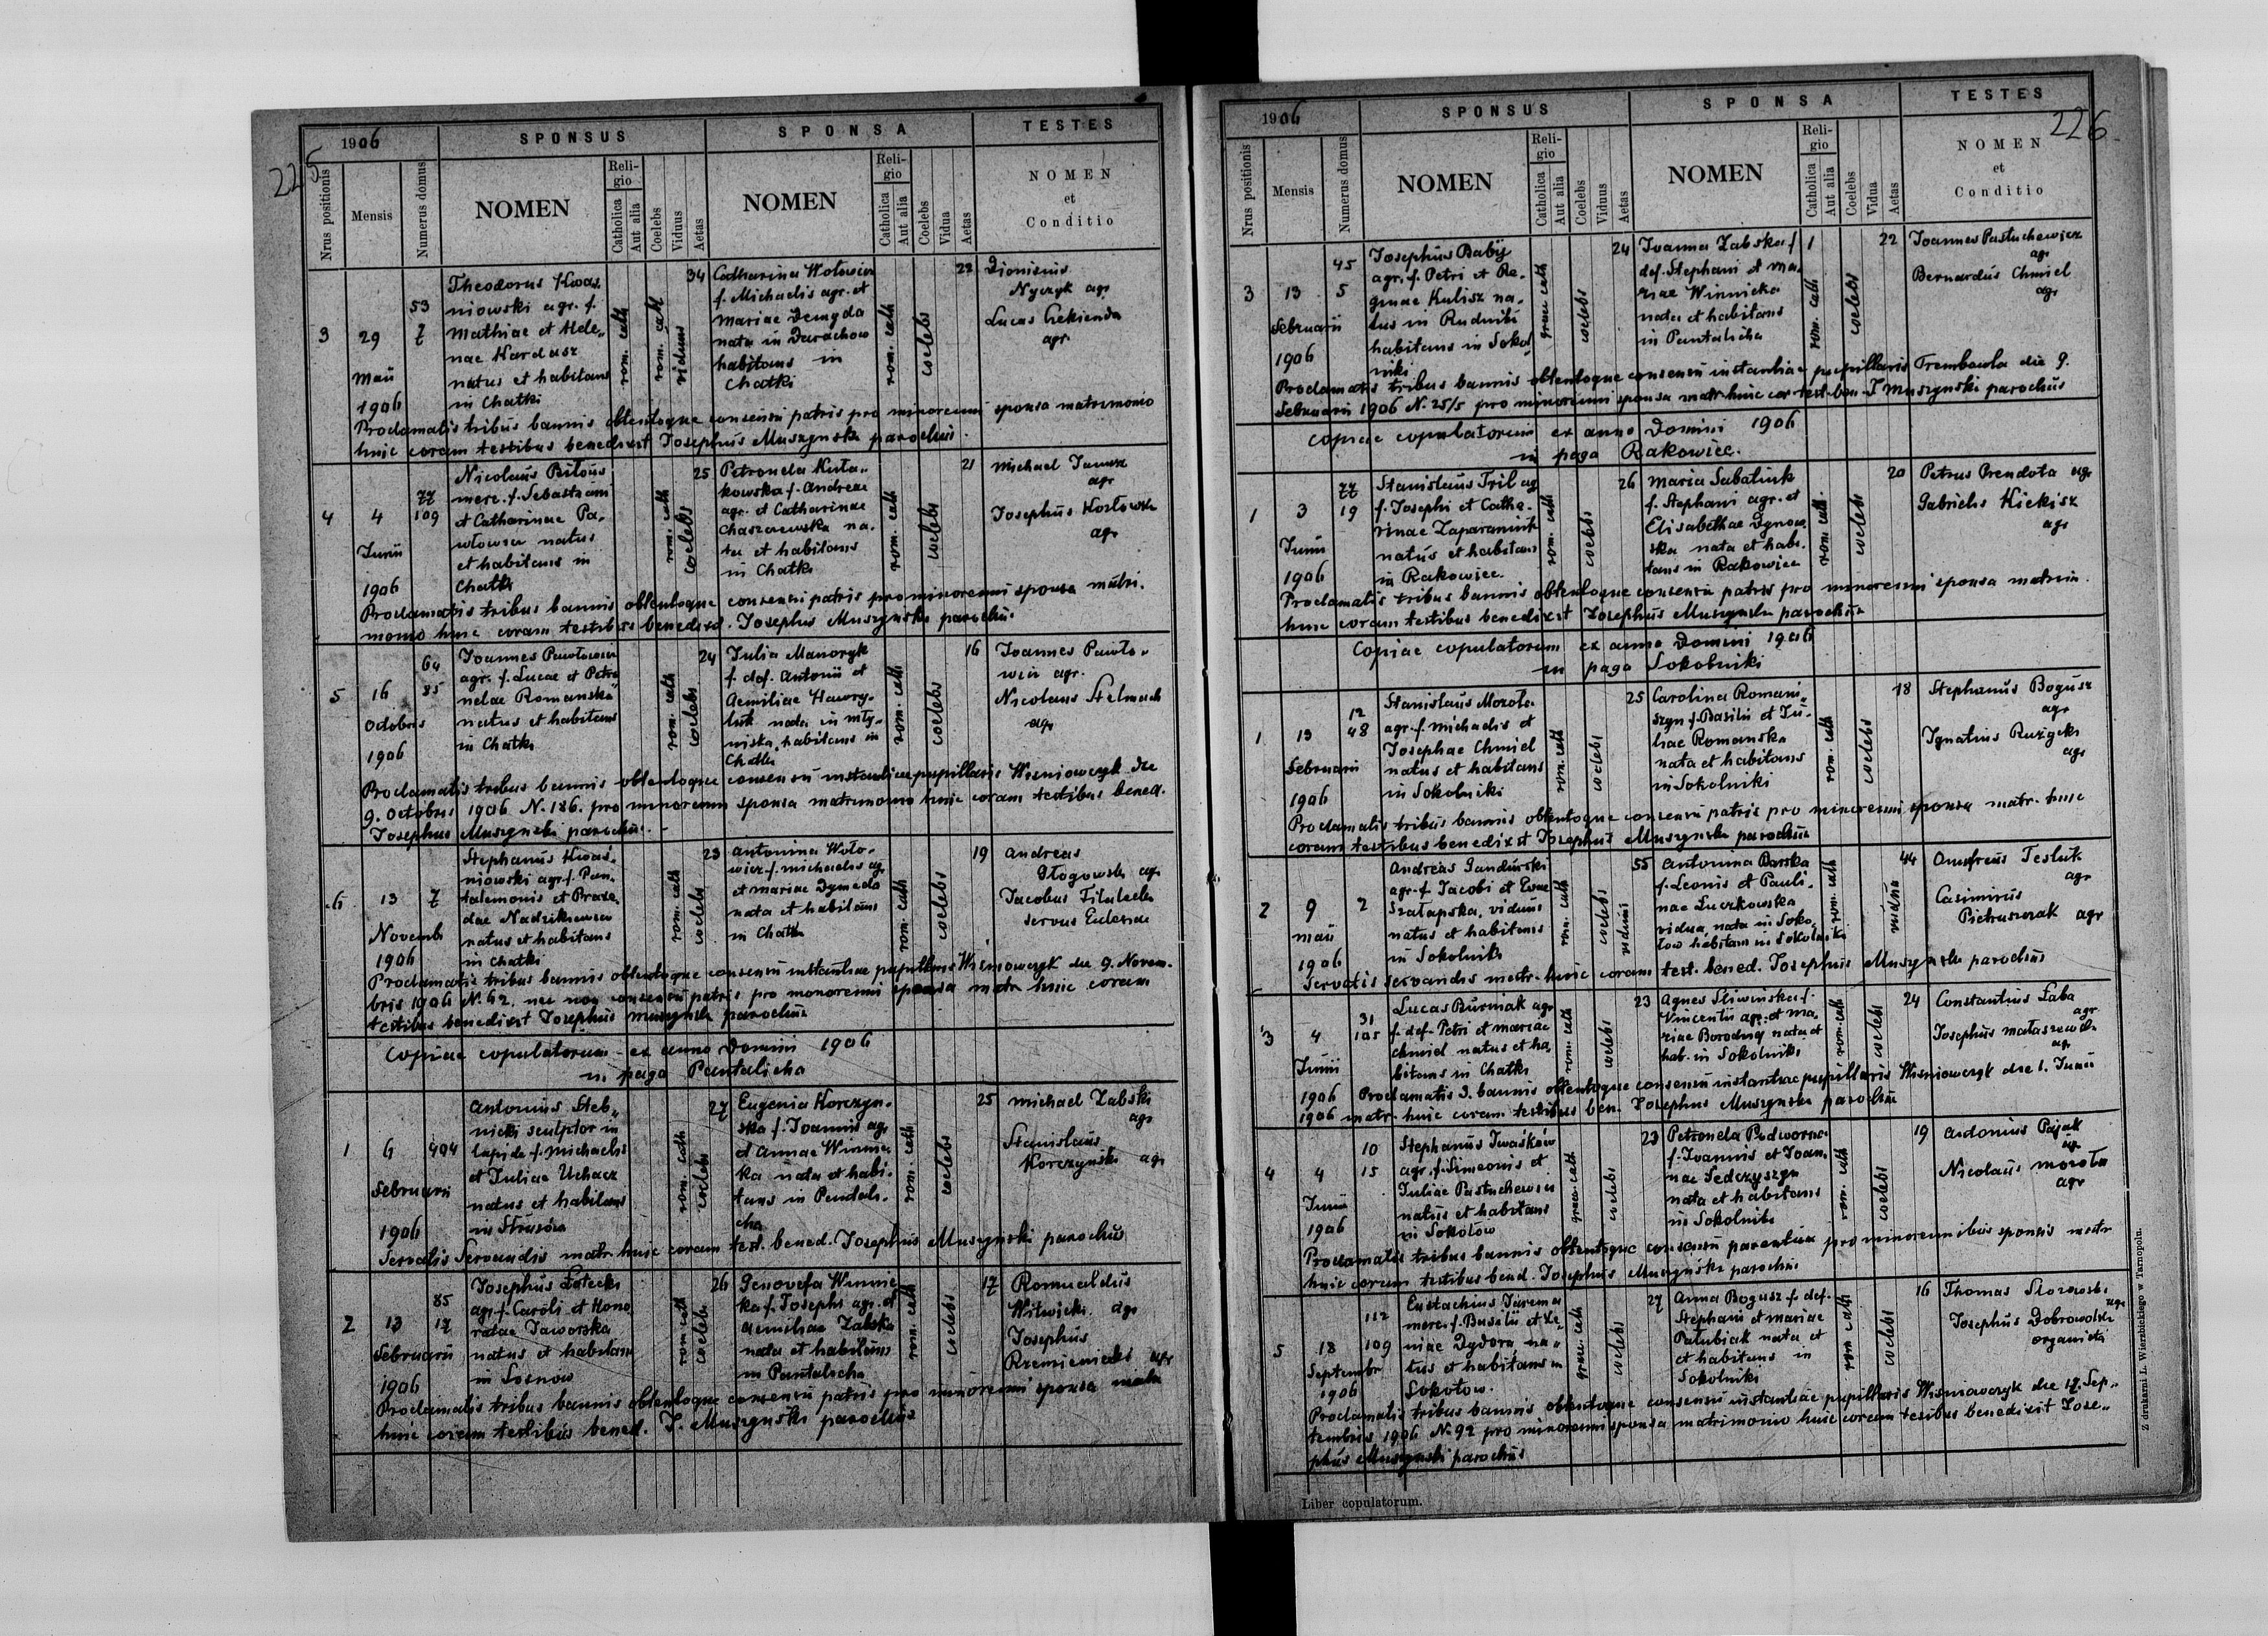 225
1906
SPONSUS
SPONSA
TESTES
Nrus positionis
Mensis
Numerus domus
NOMEN
Religio
Catholica
Aut alia
Coelebs
Viduus
Aetas
NOMEN
Religio
Catholica
Aut alia
Coelebs
Vidua
Aetas
NOMEN
et
Conditio
3
29
Maii
1906
53
7
Theodorus Kwas
niowski agr. f.
Mathiae et Hele„
nae Kardasz
natus et habitans
in Chatki
rom. cath
rom. cath
viduus
34
Catharina Wołowicz
f. Michaelis agr. et
Mariae
nata in Darachow
habitans in
Chatki
rom. cath
coelebs
22
Dionisius
Nyczyk agr
Lucas
agr.
Proclamatis tribus bannis obtentoque consensu patris pro minorenni sponsa matrimonio
huic coram testibus benedixit Josephus Muszynski parochus.
4
4
Junii
1906
77
109
Nicolaus Biłous
merc. f. Sebastiani
et Catharinae Pa„
włowicz natus
et habitans in
Chatki
rom. cath
coelebs
25
Petronela Kuta„
kowska f. Andreae
agr. et Catharinae
na„
ta et habitans
in Chatki
rom. cath
coelebs
21
Michael Janusz
agr
Josephus Kozłowski
agr
Proclamatis tribus bannis obtentoque consensu patris pro minorenni sponsa matri.
monio huic coram testibus benedixit. Josephus Muszynski parochus.
5
16
Octobris
1906
64
85
Joannes Pawłowicz
agr. f. Lucae et Petro
nelae Romanska
natus et habitans
in Chatki
rom. cath
coelebs
24
Julia Manoryk
f. def. Antonii et
Aemiliae Hawry„
luk nata in Mły„
niska, habitans in
Chatki
rom. cath
coelebs
16
Joannes Pawło„
wicz agr.
Nicolaus Stelmach
agr
Proclamatis tribus bannis obtentoque consensu instantiae pupillaris Wisniowczyk die
9. Octobris 1906 N. 186. pro minorenni sponsa matrimonio huic coram testibus bened.
Josephus Muszynski parochus.
6
13
Novemb
1906
7
Stephanus Kwas„
niowski agr. f. Pan„
talemonis et Praxe„
dae
natus et habitans
in Chatki
rom. cath
coelebs
23
Antonina Woło„
wicz f. Michaelis agr
et Mariae Dymeda
nata et habitans
in Chatki
rom. cath
coelebs
19
Andreas
Głogowski agr
Jacobus
servus Ecclesiae
Proclamatis tribus bannis obtentoque consensu instantiae pupillaris Wisniowczyk die 9. Novem„
bris 1906 N. 62. nec non consensu patris pro monorenni sponsa matr huic coram
testibus benedixit Josephus Muszynski parochus
Copiae copulatorum ex anno Domini 1906
in pago Pantalicha
1
6
Februarii
1906
494
Antonius Steb„
nicki sculptor in
lapide f. Michaelis
et Juliae Uchacz
natus et habitans
in Strusow
rom. cath
coelebs
27
Eugenia Korczyn„
ska f. Joannis agr
et Annae Winnic
ka nata et habi„
tans in Pantali„
cha
rom. cath
coelebs
25
Michael Zabski
agr
Stanislaus
Korczynski agr
Servatis Servandis matr. huic coram test. bened. Josephus Muszynski parochus
2
13
Februarii
1906
85
17
Josephus Łotecki
agr. f. Caroli et Hono
ratae Jaworska
natus et habitans
in Sosnow
rom. cath
coelebs
26
Genovefa Winnic
ka f. Josephi agr. et
Aemiliae Zabska
nata et habitans
in Pantalicha
rom. cath
coelebs
17
Romualdus
Witwicki agr
Josephus
Rzemieniecki agr
Proclamatis tribus bannis obtentoque consensu patris pro minorenni sponsa matr
huic coram testibus bened. J. Muszynski parochus
226
1906
SPONSUS
SPONSA
TESTES
Nrus positionis
Mensis
Numerus domus
NOMEN
Religio
Catholica
Aut alia
Coelebs
Viduus
Aetas
NOMEN
Religio
Catholica
Aut alia
Coelebs
Vidua
Aetas
NOMEN
et
Conditio
3
13
Februarii
1906
45
5
Josephus Babij
agr. f. Petri et Re„
ginae Kulisz na„
tus in Rudniki
habitans in Sokol
niki
graec cath
coelebs
24
Joanna Zabska f
def. Stephani et Ma„
riae Winnicka
nata et habitans
in Pantalicha
1
rom. cath
coelebs
22
Joannes Pastuchewicz
agr
Bernardus Chmiel
agr
Proclamatis tribus bannis obtentoque consensu instantiae pupillaris Trembowla die 9.
Februarii 1906 N. 25/5 pro minorenni sponsa matr huic cor test. ben. J Muszynski parochus
Copiae copulatorum ex anno Domini 1906
in pago Rakowiec.
1
3
Junii
1906
77
19
Stanislaus Tril agr
f. Josephi et Catha„
rinae Zaparaniuk
natus et habitans
in Rakowiec.
rom. cath
coelebs
26
Maria Sabatiuk
f. Stephani agr. et
Elisabethae Dynow
ska nata et habi„
tans in Rakowiec
rom. cath.
coelebs
20
Petrus Prendota agr
Gabrielis Kiekisz
agr
Proclamatis tribus bannis obtentoque consensu patris pro minorenni sponsa matrim.
huic coram testibus benedixit Josephus Muszynski parochus
Copiae copulatorum ex anno Domini 1906
in pago Sokolniki
1
13
Februarii
1906
12
48
Stanislaus Mozola
agr. f. Michaelis et
Josephae Chmiel
natus et habitans
in Sokolniki
rom. cath
coelebs
25
Carolina Romani„
szyn f. Basilii et Ju„
liae Romanska
nata et habitans
in Sokolniki
rom. cath
coelebs
18
Stephanus Bogusz
agr
Ignatius Ruzycki
agr
Proclamatis tribus bannis obtentoque consensu patris pro minorenni sponsa matr. huic
coram testibus benedixit Josephus Muszynski parochus
2
9
Maii
1906
2
Andreas Gandurski
agr. f. Jacobi et Evae
Szałapska, viduus
natus et habitans
in Sokolniki
rom. cath
coelebs
viduus
55
Antonina Barska
f. Leonis et Pauli„
nae Luczkowska
vidua, nata in Soko„
low habitans in Sokolniki
rom. cath
vidua
44
Onufreus Tesluk
agr
Casimirus
Pietruszczak agr
Servatis servandis matr. huic coram test. bened. Josephus Muszynski parochus
3
4
Junii
1906
31
105
Lucas Burniak agr
f. def. Petri et Mariae
Chmiel natus et ha„
bitans in Chatki
rom. cath
coelebs
23
Agnes Sliwinska f.
Vincentii agr. et Ma„
riae Borodny nata et
hab. in Sokolniki
rom. cath
coelebs
24
Constantius Łaba
agr
Josephus
agr
Proclamatis 3. bannis obtentoque consensu instantiae pupillaris Wisniowczyk die 1. Junii
1906 matr. huic coram testibus ben. Josephus Muszynski parochus
4
4
Junii
1906
10
15
Stephanus Iwaśków
agr. f. Simeonis et
Juliae Pastuchewicz
natus et habitans
in Sokołow
graec. cath
coelebs
23
Petronela Podworna
f. Joannis et Joan„
nae Fedczyszyn
nata et habitans
in Sokolniki
rom. cath
coelebs
19
Antonius Pająk
agr
Nicolaus Mozoła
agr
Proclamatis tribus bannis obtentoque consensu parentum pro minorennibus sponsis matr
huic coram testibus bened. Josephus Muszynski parochus
5
18
Septembr
1906
112
109
Eustachius Jarema
merc. f. Basilii et Xe„
niae Dydora, na„
tus et habitans in
Sokołow.
graec. cath
coelebs
27
Anna Bogusz f. def.
Stephani et Mariae
Patubiak nata et
et habitans in
Sokolniki
rom cath
coelebs
16
Thomas
agr
Josephus Dobrowolski
organista
Proclamatis tribus bannis obtentoque consensu instantiae pupillaris Wisniowczyk die 17. Sep„
tembris 1906 N. 92 pro minorenni sponsa matrimonio huic coram testibus benedixit Jose„
phus Muszynski parochus
Liber copulatorum.
Z drukarni L. Wierzbickiego w Tarnopolu.